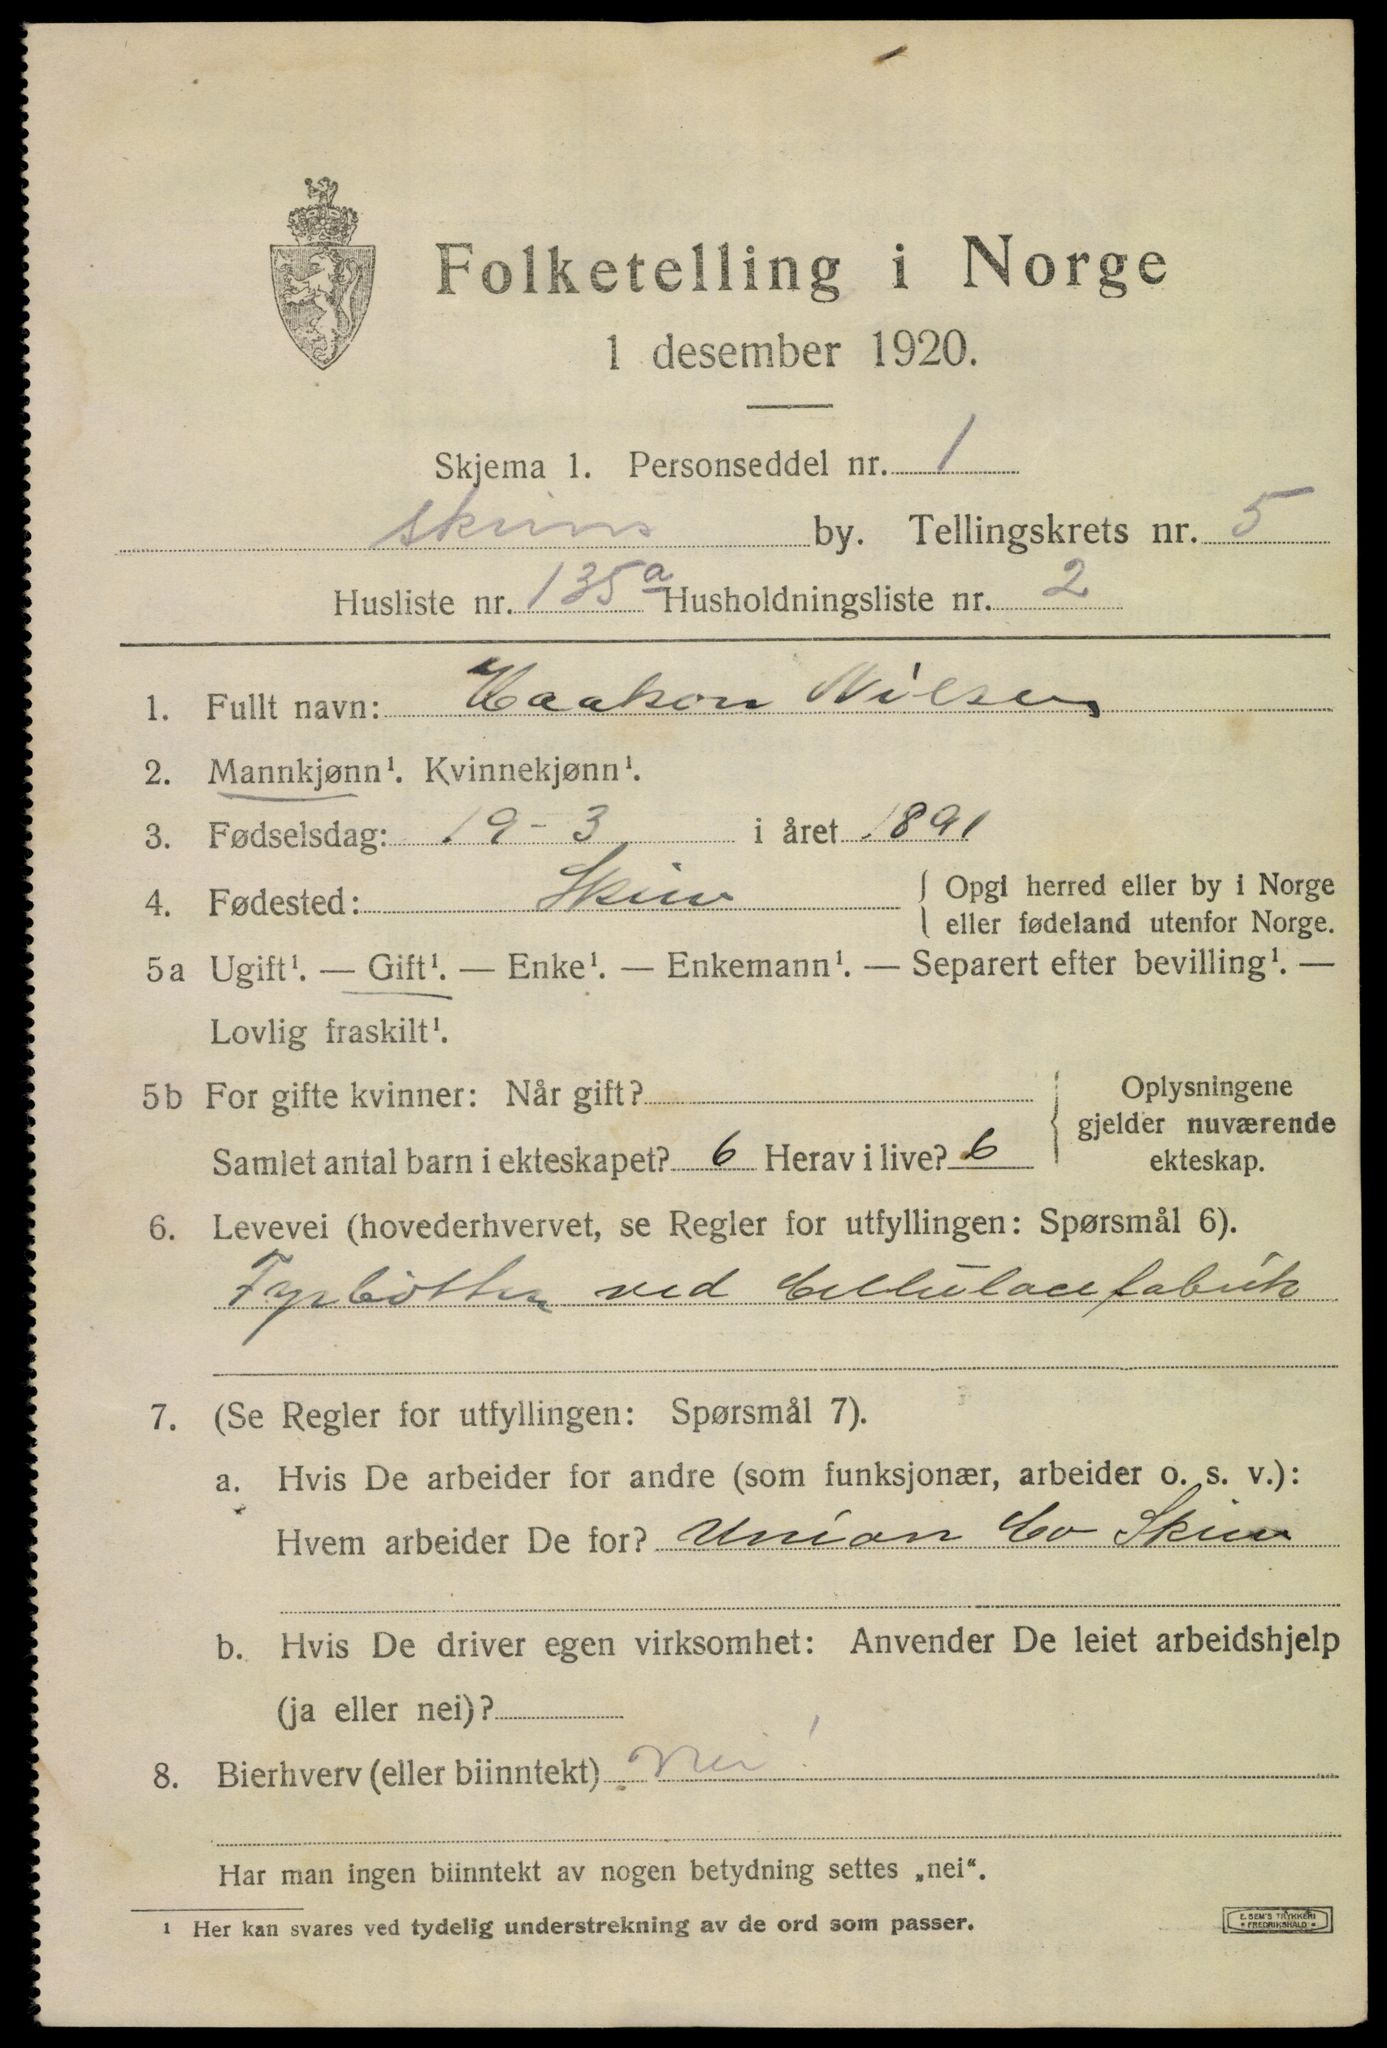 Folketelling i Norge
1 desember 1920.
Skjema 1. Personseddel nr. 1
Skiens by. Tellingskrets nr. 5
Husliste nr. 135a Husholdningsliste nr. 2
1. Fullt navn: Haakon Nilsen
2. Mannkjønn¹. Kvinnekjønn¹.
3. Fødselsdag: 19-3 i året 1891
4. Fødested: Skien { Opgi herred eller by i Norge
eller fødeland utenfor Norge.
5a Ugift¹. — Gift¹. — Enke¹. — Enkemann¹. — Separert efter bevilling¹. —
Lovlig fraskilt¹.
5b For gifte kvinner: Når gift?
Samlet antal barn i ekteskapet? 6 Herav i live? 6
{ Oplysningene
gjelder nuværende
ekteskap.
6. Levevei (hovederhvervet, se Regler for utfyllingen: Spørsmål 6).
Fyrbötter ved Cellulosefabrik
7. (Se Regler for utfyllingen: Spørsmål 7).
a. Hvis De arbeider for andre (som funksjonær, arbeider o. s. v.):
Hvem arbeider De for? Union Co Skien
b. Hvis De driver egen virksomhet: Anvender De leiet arbeidshjelp
(ja eller nei)?
8. Bierhverv (eller biinntekt) Nei!
Har man ingen biinntekt av nogen betydning settes „nei“.
¹ Her kan svares ved tydelig understrekning av de ord som passer.
E. SEM'S TRYKKERI
* FREDRIKSHALD *